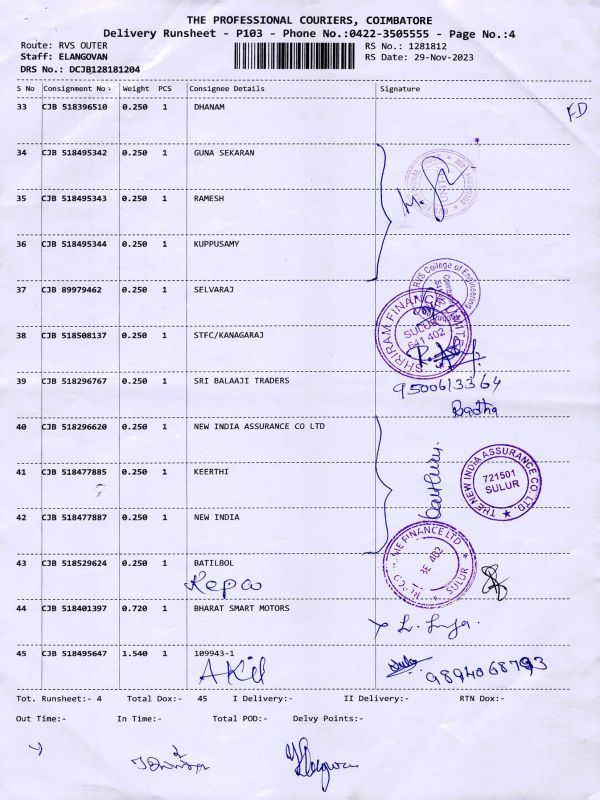 THE PROFESSIONAL COURIERS, COIMBATORE
Delivery Runsheet - P103 - Phone No.:0422-3505555 - Page No.:4
Route: RVS OUTER RS No.: 1281812
Staff: ELANGOVAN RS Date: 29-Nov-2023
DRS No.: DCJB128181204
S No Consignment No. Weight PCS Consignee Details Signature
33 CJB 518396510 0.250 1 DHANAM FD
34 CJB 518495342 0.250 1 GUNA SEKARAN
35 CJB 518495343 0.250 1 RAMESH
36 CJB 518495344 0.250 1 KUPPUSAMY
37 CJB 89979462 0.250 1 SELVARAJ
RVS College of Engineering
38 CJB 518508137 0.250 1 STFC/KANAGARAJ
SHRIRAM FINANCE LIMITED
SULUR
641 402
39 CJB 518296767 0.250 1 SRI BALAAJI TRADERS
9500613364
40 CJB 518296620 0.250 1 NEW INDIA ASSURANCE CO LTD
41 CJB 518477885 0.250 1 KEERTHI
THE NEW INDIA ASSURANCE CO. LTD.
721501
SULUR
42 CJB 518477887 0.250 1 NEW INDIA
43 CJB 518529624 0.250 1 BATILBOL
FINANCE LTD
402
SULUR
44 CJB 518401397 0.720 1 BHARAT SMART MOTORS
45 CJB 518495647 1.540 1 109943-1
Akil 9894068793
Tot. Runsheet:- 4 Total Dox:- 45 I Delivery:- II Delivery:- RTN Dox:-
Out Time:- In Time:- Total POD:- Delvy Points:-